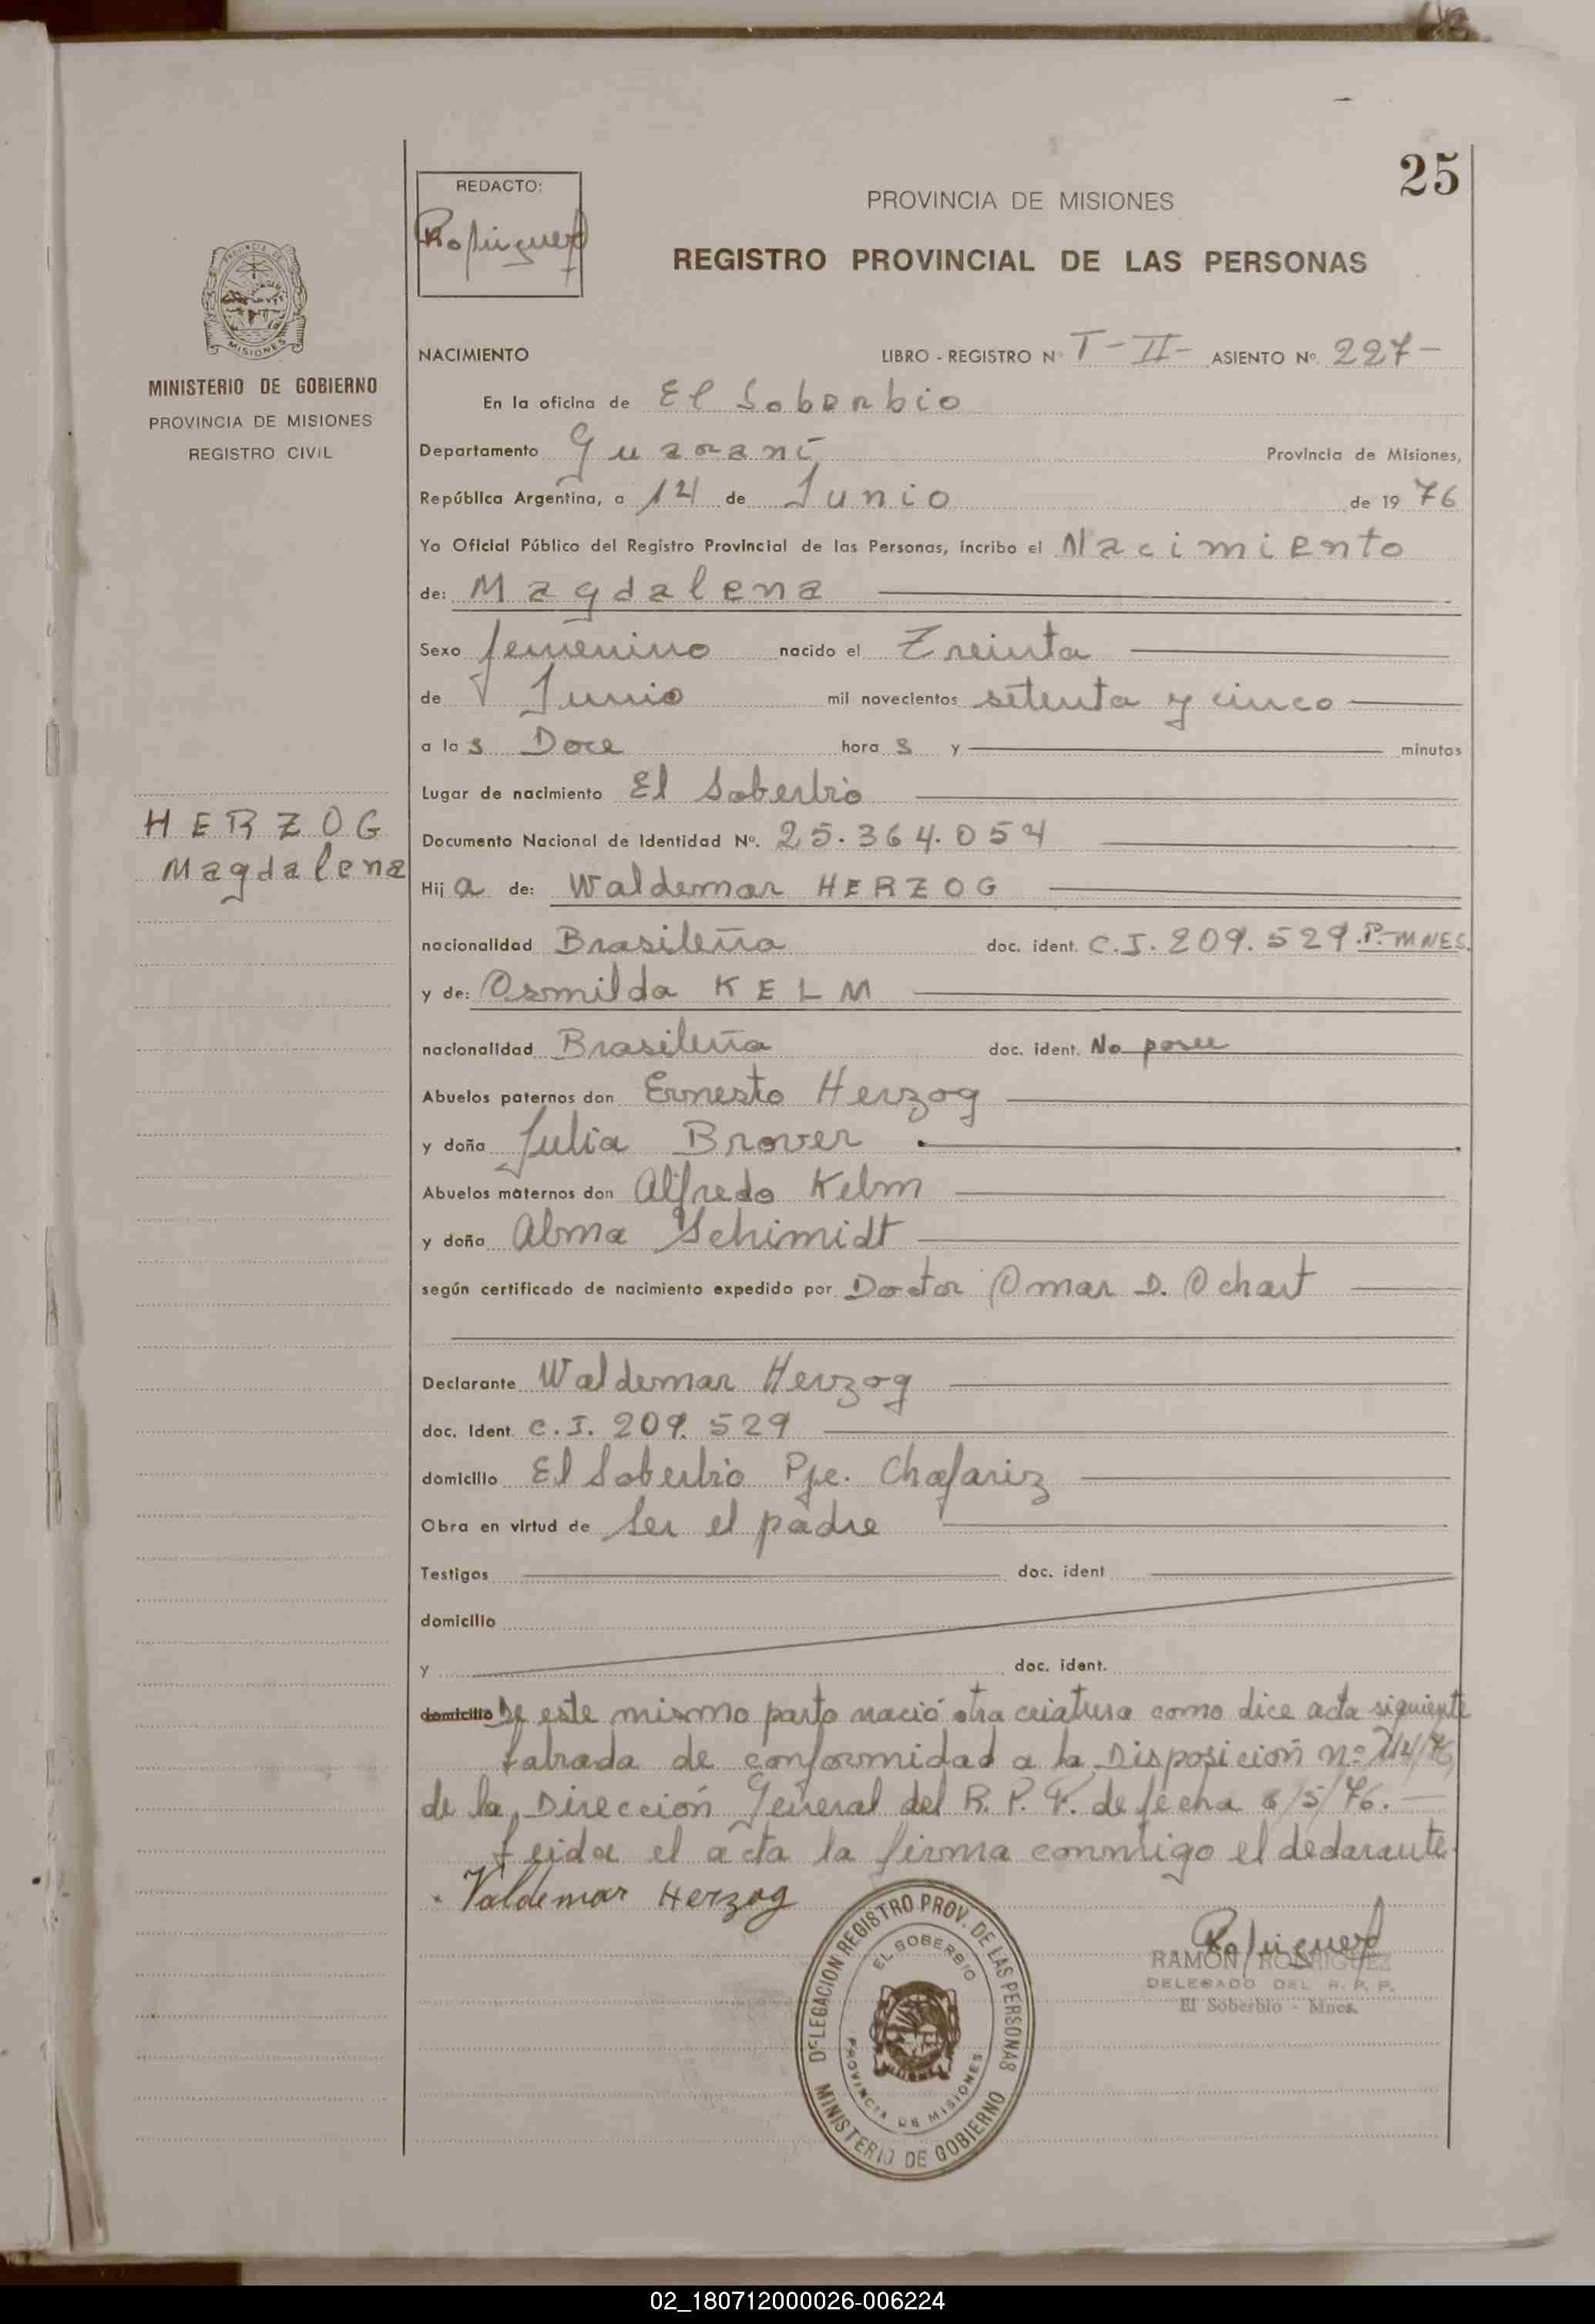 25
REDACTO:
Rodriguez
PROVINCIA DE MISIONES
REGISTRO PROVINCIAL DE LAS PERSONAS
PROVINCIA DE
MISIONES
MINISTERIO DE GOBIERNO
PROVINCIA DE MISIONES
REGISTRO CIVIL
NACIMIENTO LIBRO - REGISTRO Nº T-II- ASIENTO Nº. 227-
En la oficina de El Soberbio
Departamento Guaraní Provincia de Misiones,
República Argentina, a 14 de Junio de 1976
Yo Oficial Público del Registro Provincial de las Personas, incribo el Nacimiento
de: Magdalena
Sexo femenino nacido el Treinta
de Junio mil novecientos setenta y cinco
a las Doce horas y minutos
Lugar de nacimiento El Soberbio
HERZOG
Magdalena
Documento Nacional de Identidad Nº. 25.364.054
Hija de: Waldemar HERZOG
nacionalidad Brasileña doc. ident. C.I. 209.529.P.MNES.
y de: Osmilda KELM
nacionalidad Brasileña doc. ident. No posee
Abuelos paternos don Ernesto Herzog
y doña Julia Brover
Abuelos maternos don Alfredo Kelm
y doña Alma Schimidt
según certificado de nacimiento expedido por Doctor Omar D. Ochart
Declarante Waldemar Herzog
doc. Ident. C.I. 209.529
domicilio El Soberbio Pje. Chafariz
Obra en virtud de Ser el padre
Testigos doc. ident
domicilio
y doc. ident.
domicilio De este mismo parto nació otra criatura como dice acta siguiente
labrada de conformidad a la Disposición nº
de la Dirección General del R. P. P. de fecha 6/5/76.-
Leida el acta la firma conmigo el declarante.
Valdemar Herzog
Rodriguez
RAMON RODRIGUEZ
DELEGADO DEL R. P. P.
El Soberbio - Mnes.
DELEGACION REGISTRO PROV. DE LAS PERSONAS
EL SOBERBIO
PROVINCIA DE MISIONES
MINISTERIO DE GOBIERNO
02_180712000026-006224